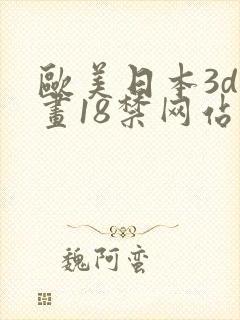 歐美日本3d
畫18禁网佔
魏阿蛮